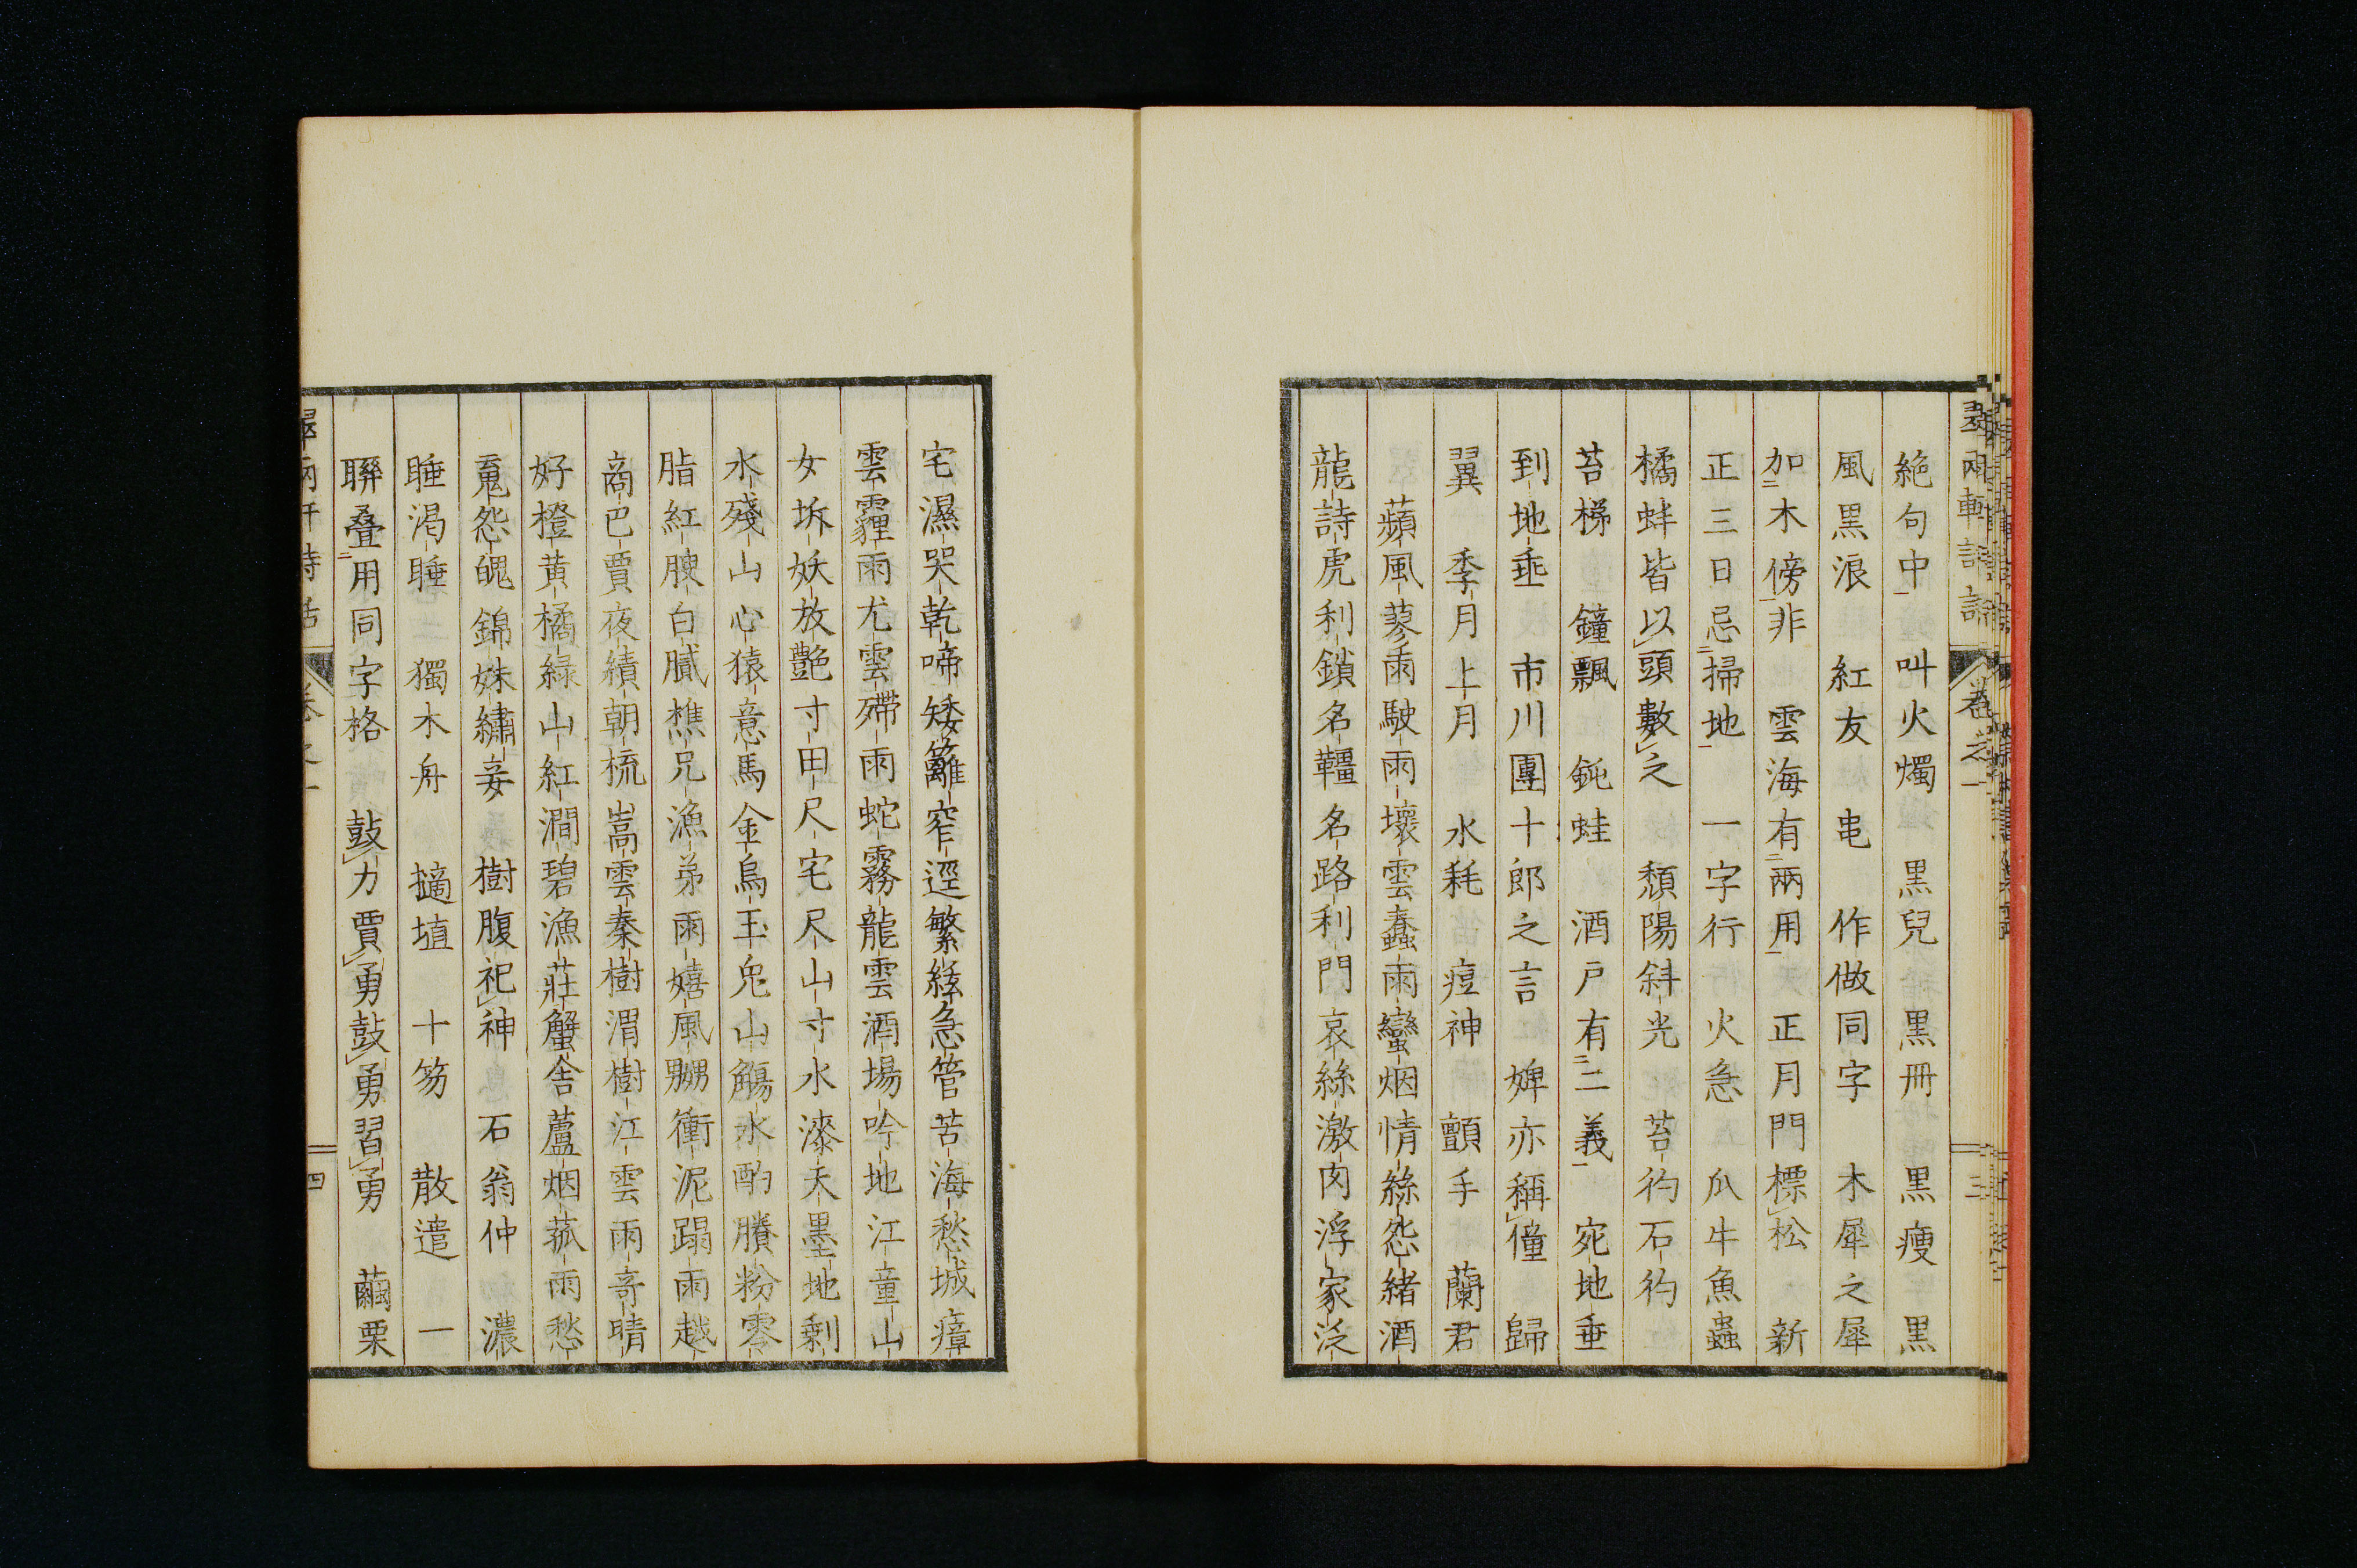 絶句中叫火燭 黒兒黒冊 黒痩 黒
風黒浪 紅友 黽 作做同字 木犀之犀
加木傍非 雲海有兩用 正月門標松 新
正三日忌掃地 一字行 火急 瓜牛魚蟲
橘蚌皆以頭數之 頽陽斜光 苔彴石彴
苔梯 鐘飄 鈍蛙 酒戸有二義 宛地垂
到地垂 市川團十郎之言 婢亦稱僮 歸
翼 季月上月 水耗 痘神 顫手 蘭君
蘋風蓼雨駛雨壞雲蠢雨蠻烟情絲怨緒酒
龍詩虎利鎖名韁名路利門哀絲激肉浮家泛
宅濕哭乾啼矮籬窄逕繁絃急管苦海愁城瘴
雲霾雨尤雲殢雨蛇霧龍雲酒場吟地江童山
女坼妖放艶寸田尺宅尺山寸水漆天墨地剰
水殘山心猿意馬金烏玉兎山觴水酌賸粉零
脂紅腴白膩樵兄漁弟雨嬉風嬲衝泥蹋雨越
商巴賈夜績朝梳嵩雲秦樹渭樹江雲雨奇晴
好橙黄橘緑山紅澗碧漁莊蟹舎蘆烟菰雨愁
䰟怨魄錦妹繡妾 樹腹祀神 石翁仲 濃
睡渇睡 獨木舟 擿埴 十笏 散遣 一
聯疊用同字格 鼓力賈勇鼓勇習勇 繭栗